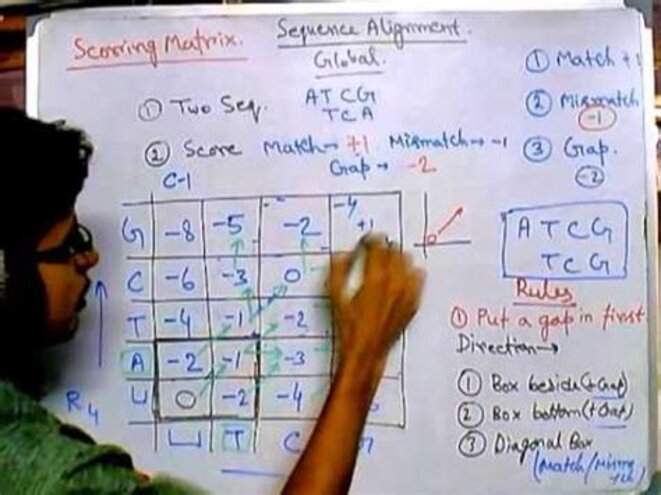 Scorring Matrix.
Sequence Alignment.
Global.
① Two Seq. ATCG
TCA
② Score Match→ +1 Mismatch→ -1
Gap→ -2
① Match +1
② Mismatch
-1
③ Gap.
-2
C-1
G -8 -5 -2 -4 +1
C -6 -3 0
T -4 -1 -2
A -2 -1 -3
R4 ⊔ 0 -2 -4
⊔ T C G
ATCG
TCG
Rules
① Put a gap in first
Direction→
① Box beside (+Gap)
② Box bottom (+Gap)
③ Diagonal Box
(Match/Mismatch)